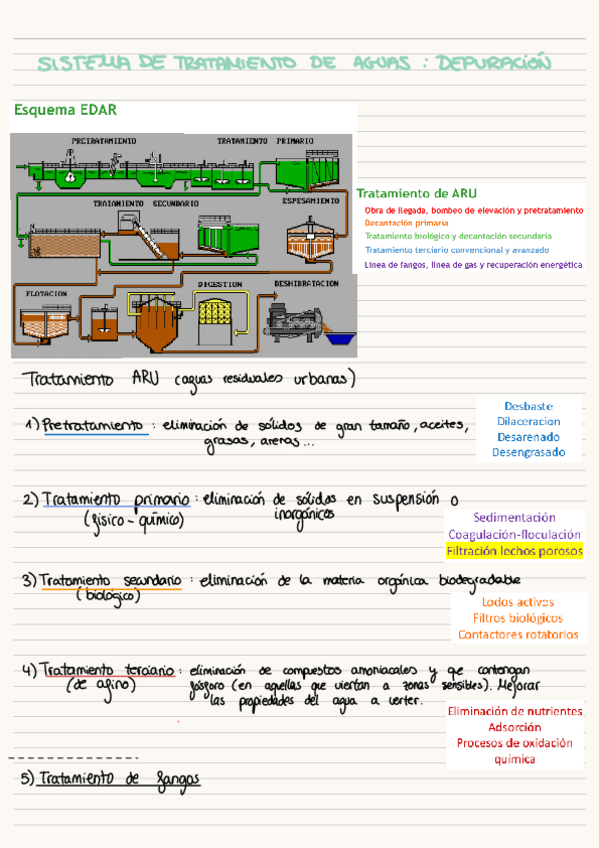 SISTEMA DE TRATAMIENTO DE AGUAS : DEPURACIÓN
Esquema EDAR
PRETRATAMIENTO
TRATAMIENTO PRIMARIO
TRATAMIENTO SECUNDARIO
ESPESAMIENTO
FLOTACION
DIGESTION
DESHIDRATACION
Tratamiento de ARU
Obra de llegada, bombeo de elevación y pretratamiento
Decantación primaria
Tratamiento biológico y decantación secundaria
Tratamiento terciario convencional y avanzado
Línea de fangos, línea de gas y recuperación energética
Tratamiento ARU (aguas residuales urbanas)
1) Pretratamiento : eliminación de sólidos de gran tamaño, aceites,
grasas, arenas...
Desbaste
Dilaceracion
Desarenado
Desengrasado
2) Tratamiento primario : eliminación de sólidos en suspensión o
(físico-químico) inorgánicos
Sedimentación
Coagulación-floculación
Filtración lechos porosos
3) Tratamiento secundario : eliminación de la materia orgánica biodegradable
(biológico)
Lodos activos
Filtros biológicos
Contactores rotatorios
4) Tratamiento terciario : eliminación de compuestos amoniacales y que contengan
(de afino) fósforo (en aquellas que viertan a zonas sensibles). Mejorar
las propiedades del agua a verter.
Eliminación de nutrientes
Adsorción
Procesos de oxidación
química
5) Tratamiento de fangos